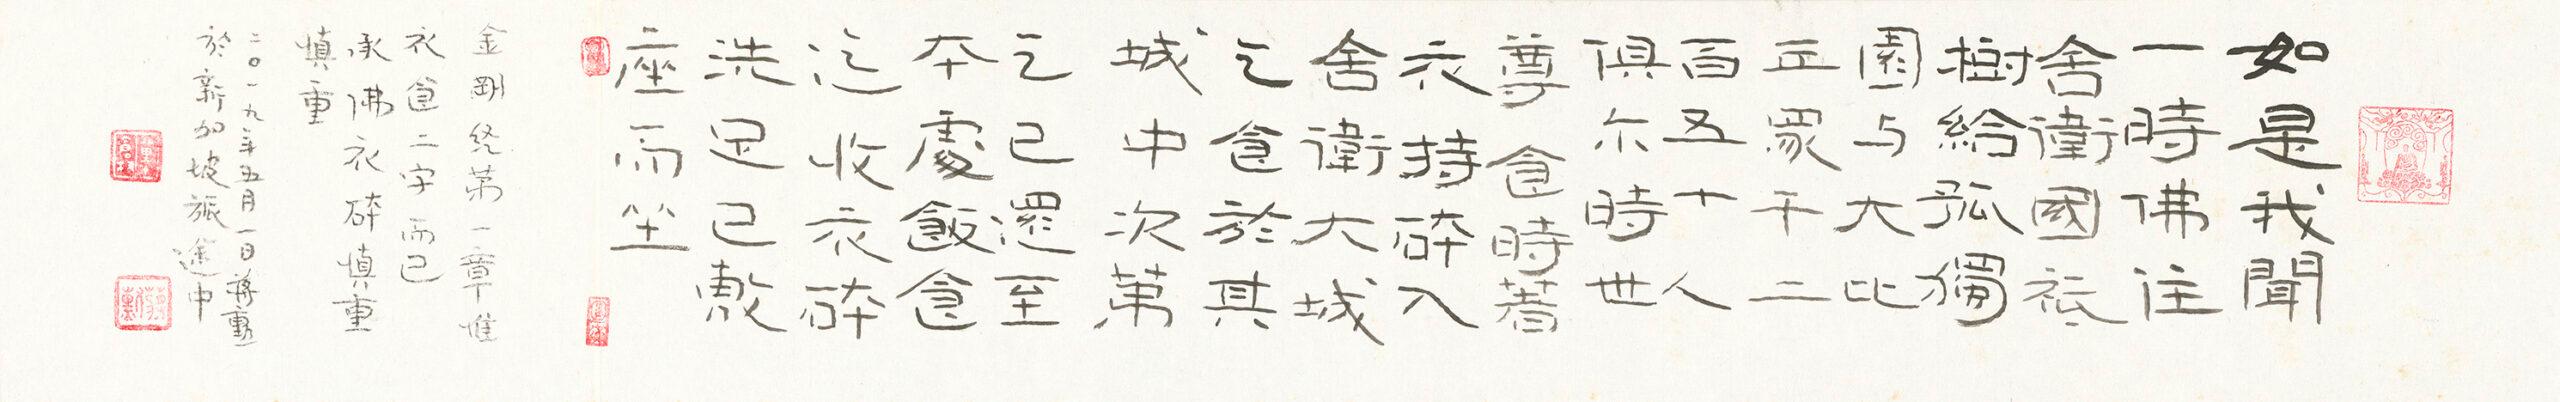 如是我聞
一時佛住
舍衛國祇
樹給孤獨
園与大比
丘眾千二
百五十人
俱尓時世
尊食時著
衣持砵入
舍衛大城
乞食於其
城中次第
乞已還至
本處飯食
訖收衣砵
洗足已敷
座而坐
金剛経第一章惟
衣食二字而已
承佛衣砵慎重
慎重
二〇一九年五月一日蔣勳
於新加坡旅途中